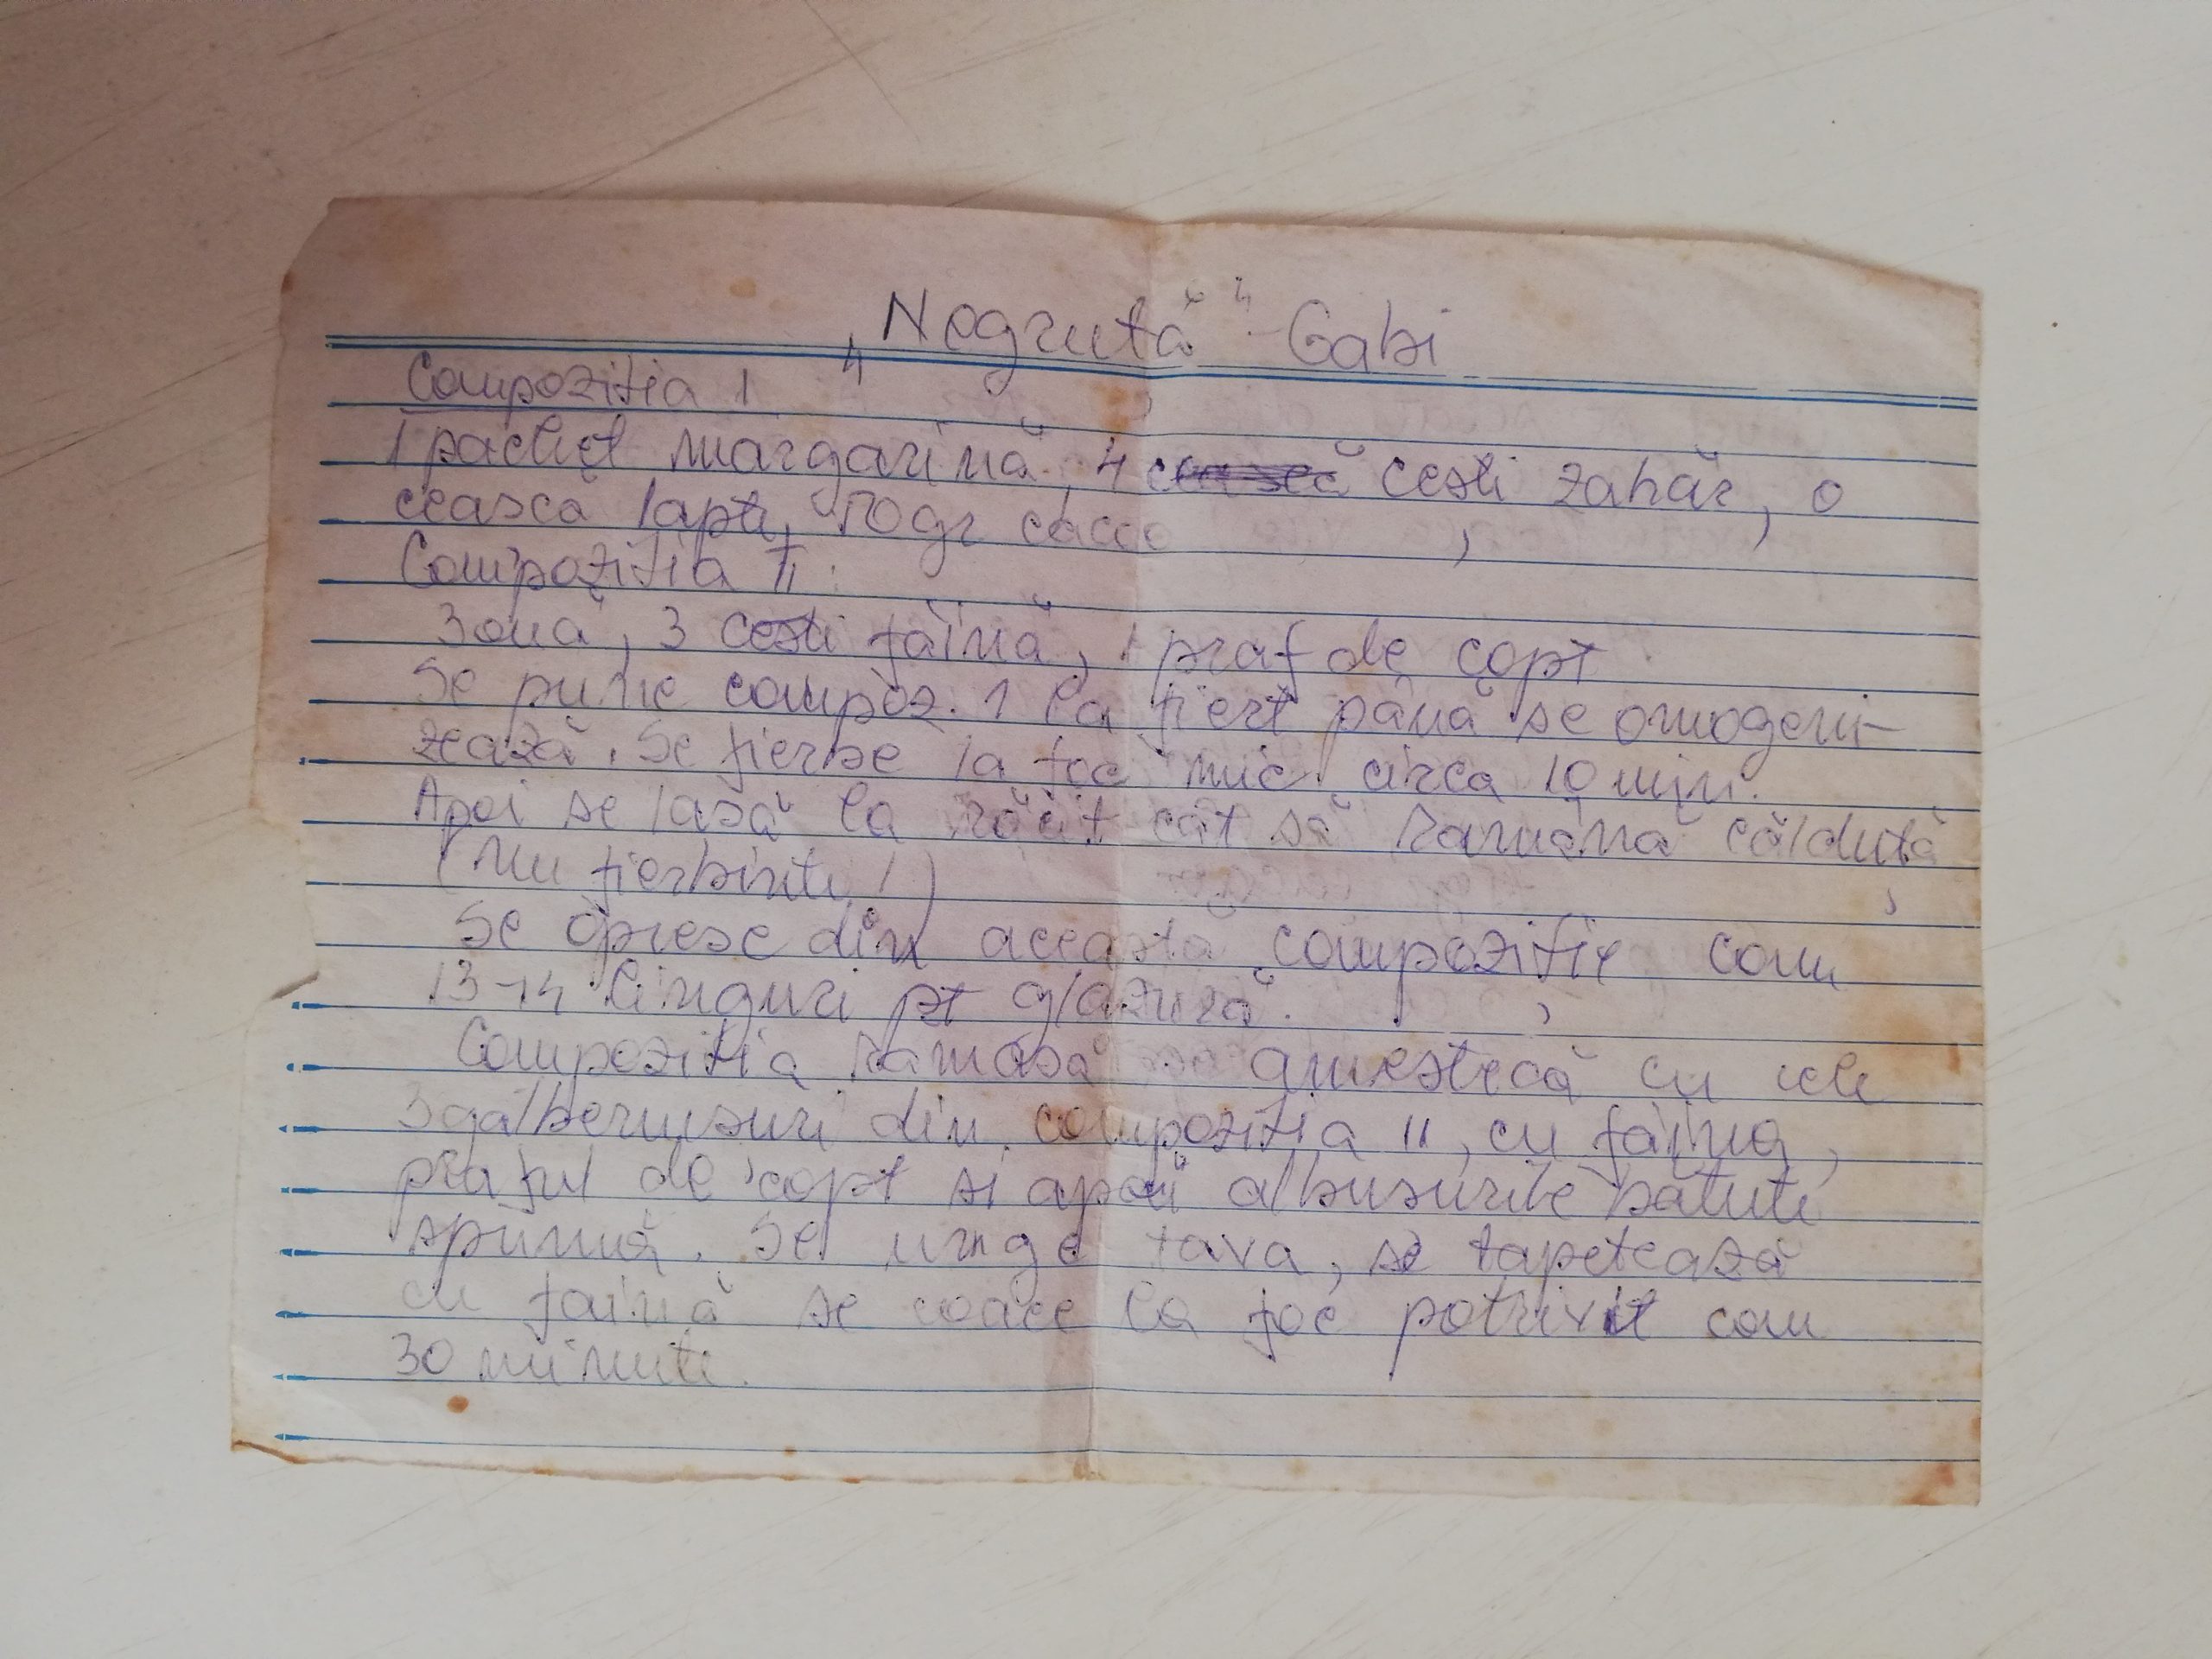 „Negruță" - Gabi
Compoziția 1
1 pachet margarină, 4 cești zahăr, o
ceașcă lapte, 50gr cacao
Compoziția II:
3 ouă, 3 cești făină, 1 praf de copt
Se pune compoz. 1 la fiert până se omogeni-
zează. Se fierbe la foc mic circa 10 min.
Apoi se lasă la răcit cât să rămână călduță
(nu fierbinte!)
Se oprește din această compoziție cam
13-14 linguri pt glazură.
Compoziția rămasă se amestecă cu cele
3 gălbenușuri din compoziția II, cu făina,
praful de copt și apoi albușurile bătute
spumă. Se unge tava, se tapetează
cu făină se coace la foc potrivit cam
30 minute.